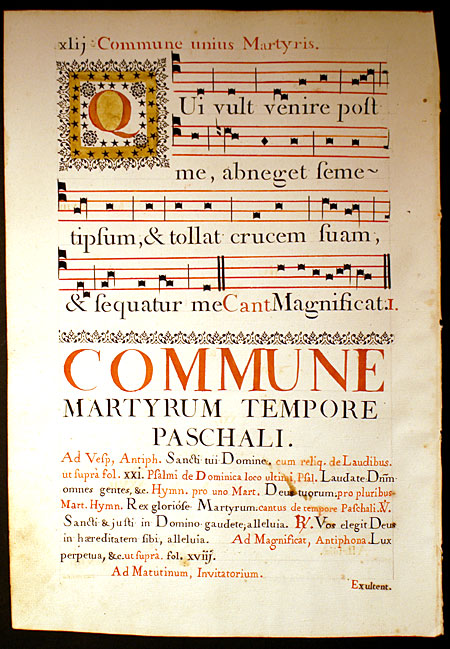 xlij Commune unius Martyris.
QUi vult venire poſt
me, abneget ſeme~
tipſum, & tollat crucem ſuam,
& ſequatur me Cant. Magnificat. 1.
COMMUNE
MARTYRUM TEMPORE
PASCHALI.
Ad Veſp, Antiph. Sancti tui Domine. cum reliq. de Laudibus.
ut ſuprà fol. XXI. Pſalmi de Dominica loco ultimi, Pſal. Laudate Dn̄m
omnes gentes, &c. Hymn. pro uno Mart. Deus tuorum, pro pluribus
Mart. Hymn. Rex glorioſe Martyrum. cantus de tempore Paschali. ℣.
Sancti & juſti in Domino gaudete, alleluia. ℟. Vos elegit Deus
in hæreditatem ſibi, alleluia. Ad Magnificat, Antiphona. Lux
perpetua, &c. ut ſuprà. fol. xviij.
Ad Matutinum, Invitatorium.
Exultent.